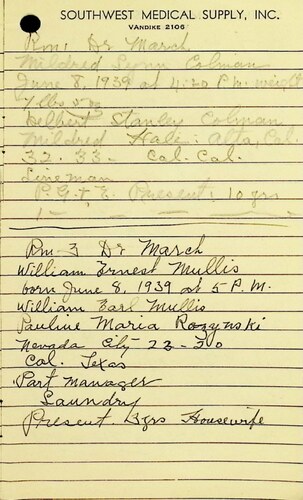 SOUTHWEST MEDICAL SUPPLY, INC.
VANDIKE 2106
Rm 1 Dr March
Mildred Lynn Colman
June 8, 1939 at 4:20 P.M. weight
7 lbs 5 oz
Delbert Stanley Colman
Mildred Hale: Alta, Cal.
32 - 33 - Cal. Cal.
Line man
P. G. & E. Present: 10 yrs
1 -
Rm 3 Dr March
William Ernest Mullis
born June 8, 1939 at 5 P.M.
William Earl Mullis
Pauline Maria Rozynski
Nevada City 23 - 30
Cal. Texas
Part Manager
Laundry
Present 3 yrs Housewife